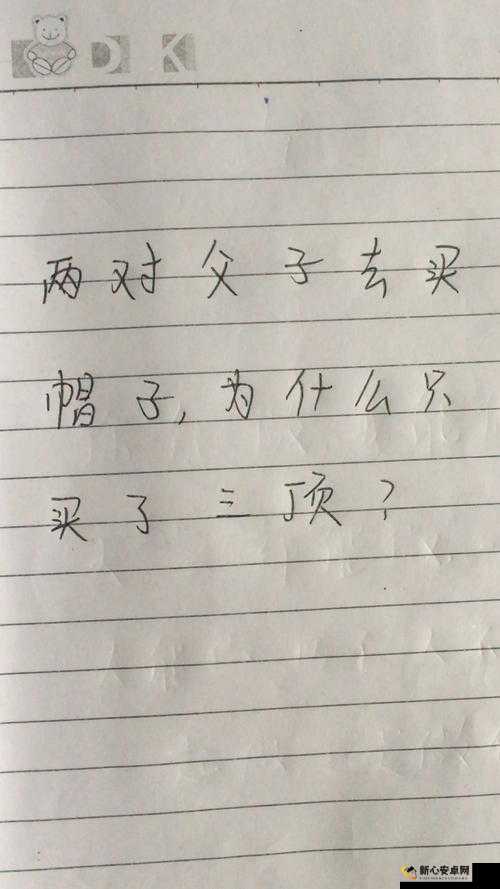 DK
两对父子去买
帽子,为什么只
买了三顶?
新心安卓网